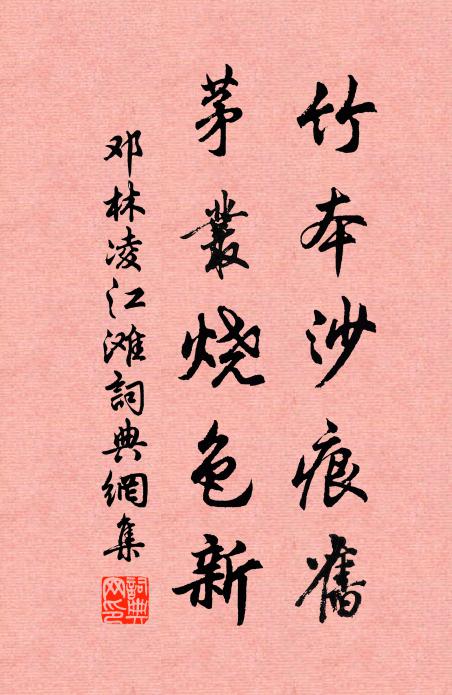 竹本沙痕舊
茅叢烧色新
邓林凌江滩詞典網集
詞典网印